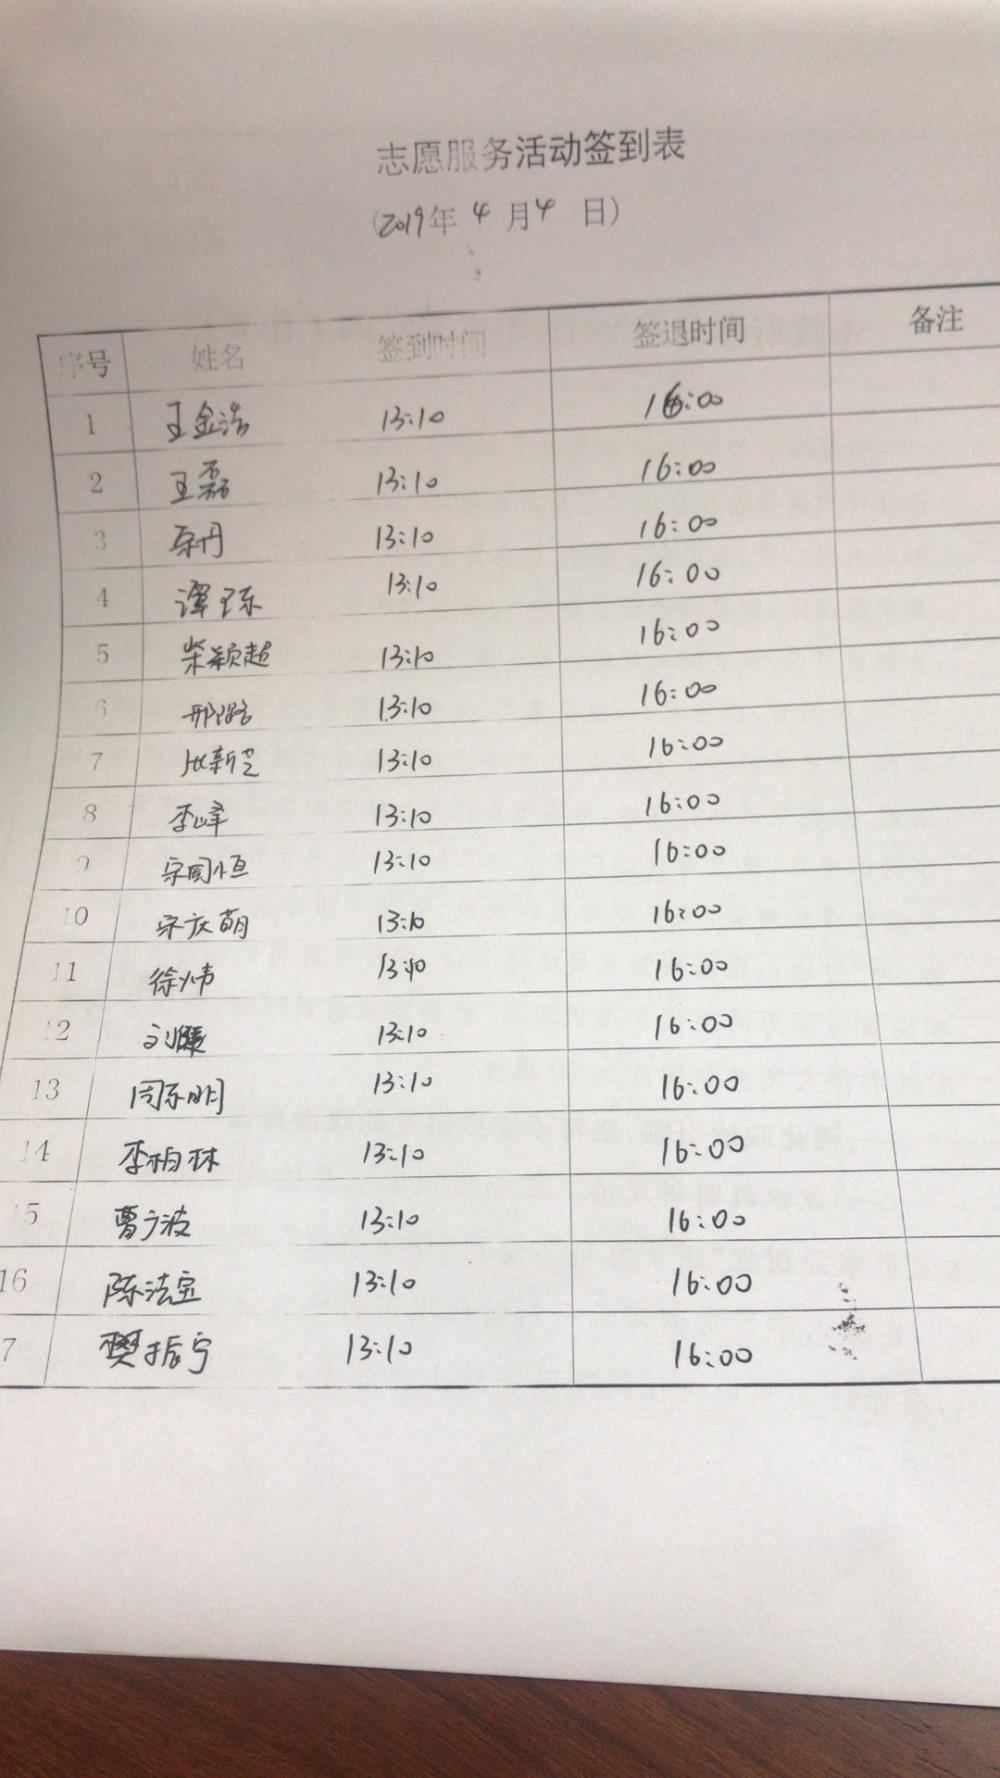 志愿服务活动签到表
(2019年 4 月 4 日)
序号 姓名 签到时间 签退时间 备注
1 王金浩 13:10 16:00
2 王磊 13:10 16:00
3 13:10 16:00
4 谭 13:10 16:00
5 柴颖超 13:10 16:00
6 邢 13:10 16:00
7 13:10 16:00
8 李峰 13:10 16:00
9 宋国恒 13:10 16:00
10 宋庆萌 13:10 16:00
11 徐炜 13:10 16:00
12 刘 13:10 16:00
13 周东明 13:10 16:00
14 李柏林 13:10 16:00
15 曹广波 13:10 16:00
16 陈法宝 13:10 16:00
7 樊振宁 13:10 16:00